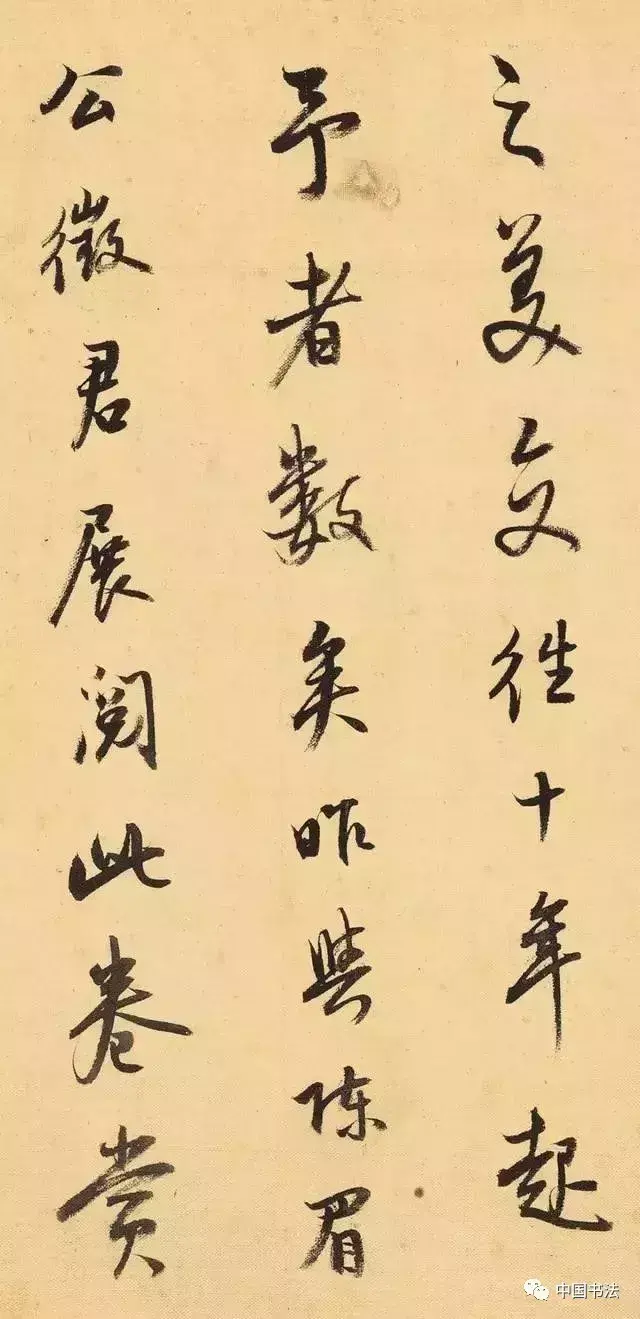 之美交往十年起
予者數矣昨與陳眉
公徵君展閱此卷賞
中国书法